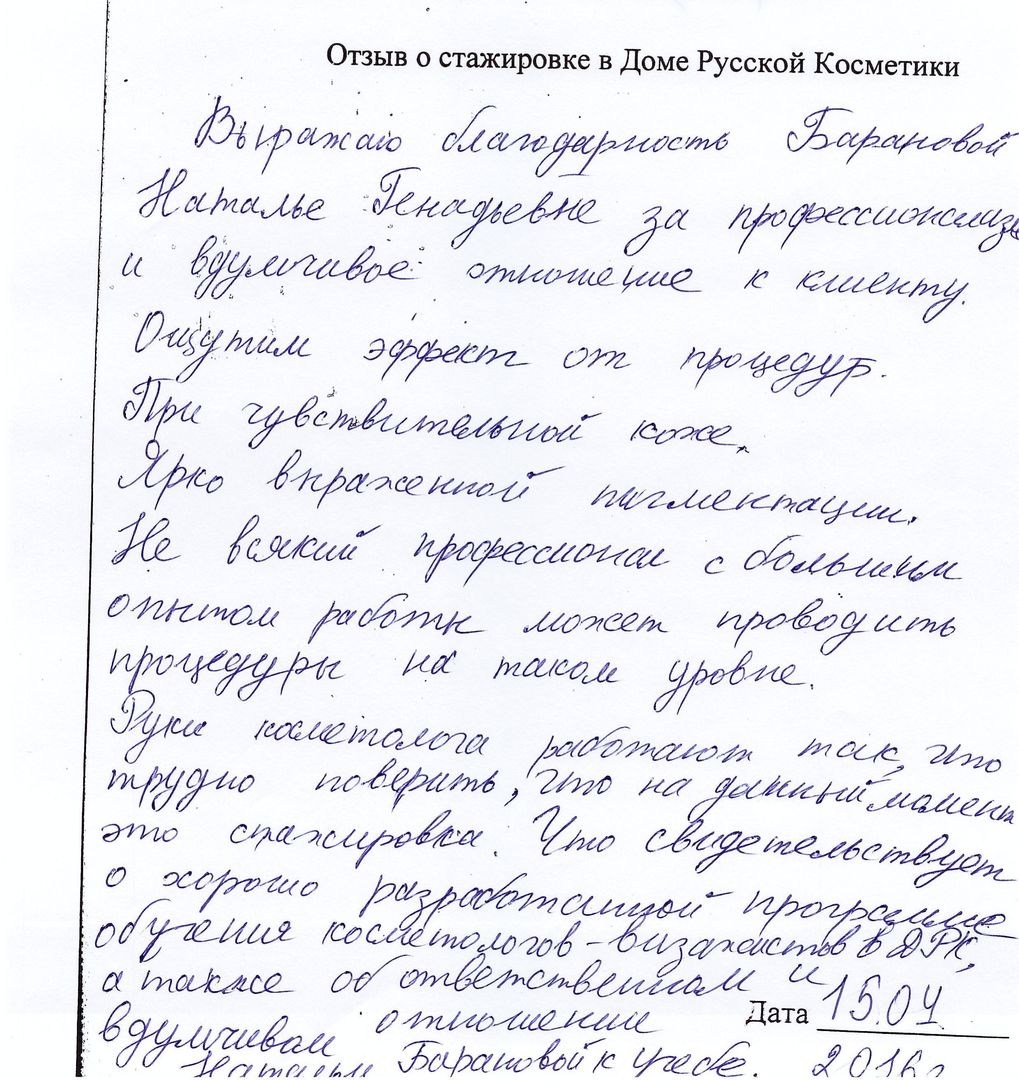 Отзыв о стажировке в Доме Русской Косметики
Выражаю благодарность Барановой
Наталье Генадьевне за профессионализм
и вдумчивое отношение к клиенту.
Ощутим эффект от процедур.
При чувствительной коже,
Ярко выраженной пигментации.
Не всякий профессионал с большим
опытом работы может проводить
процедуры на таком уровне.
Руки косметолога работают так, что
трудно поверить, что на данный момент
это стажировка. Что свидетельствует
о хорошо разработанной программе
обучения косметологов-визажистов в ДРК,
а также об ответственном и
вдумчивом отношении
Дата 15.04
Натальи Барановой к учебе. 2016г